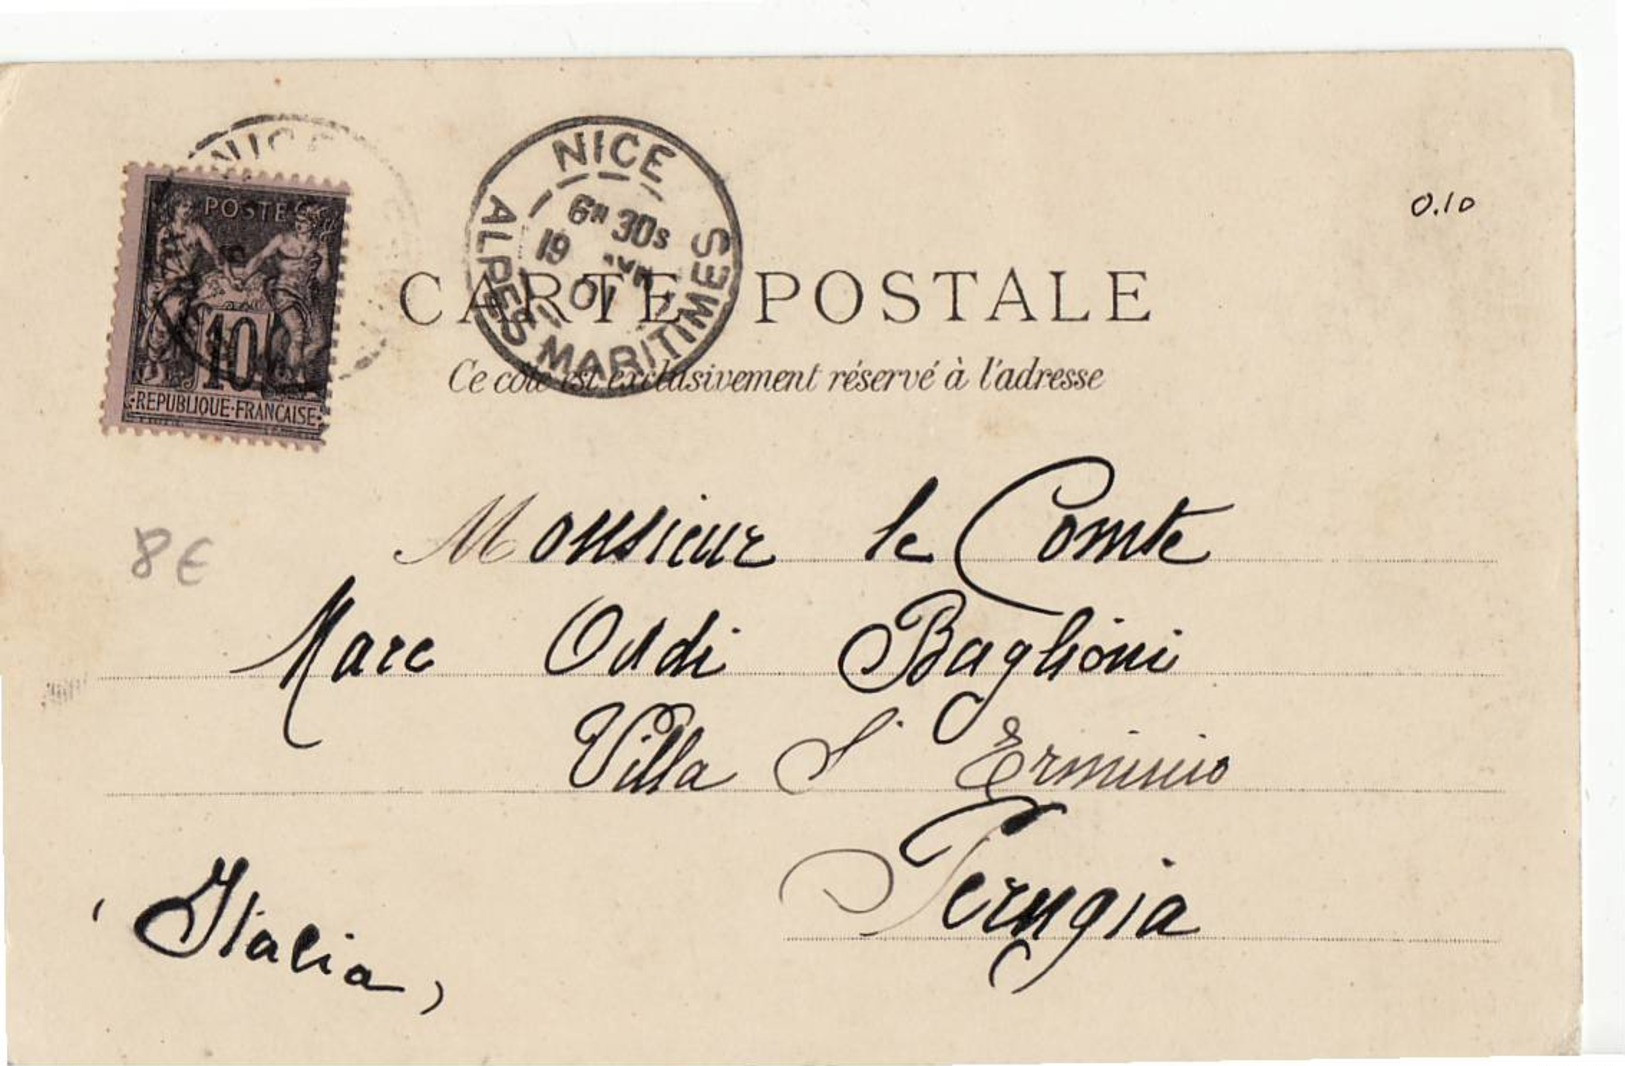 NICE
POSTES
10
REPUBLIQUE·FRANCAISE
NICE
6H 30S
19
01
ALPES MARITIMES
0.10
CARTE POSTALE
Ce côté est exclusivement réservé à l'adresse
8€
Monsieur le Comte
Marc Oddi Baglioni
Villa S. Erminio
Perugia
(Italia)